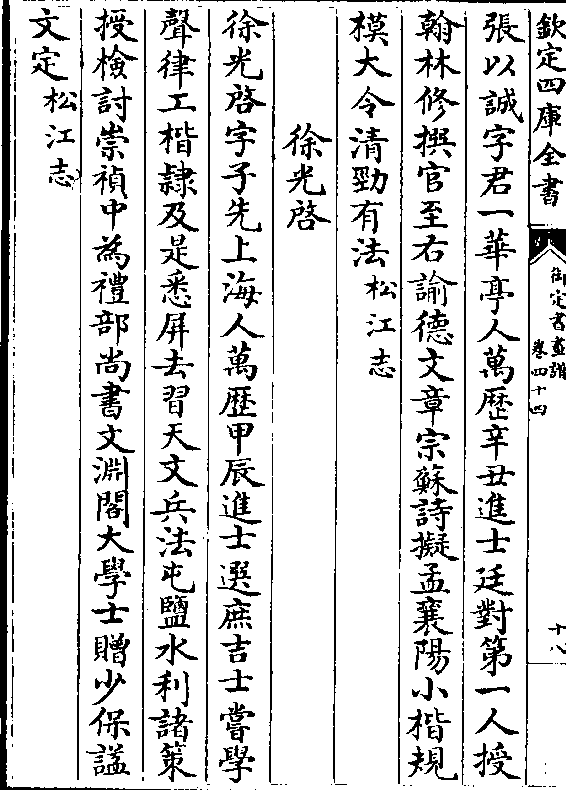 欽定四庫全書
御定書畫譜
卷四十四
十八
張以誠字君一華亭人萬歷辛丑進士廷對第一人授
翰林修撰官至右諭德文章宗蘇詩擬孟襄陽小楷規
模大令清勁有法松江志
徐光啓
徐光啓字子先上海人萬歷甲辰進士選庶吉士嘗學
聲律工楷隸及是悉屏去習天文兵法屯鹽水利諸策
授檢討崇禎中為禮部尚書文淵閣大學士贈少保謚
文定松江志